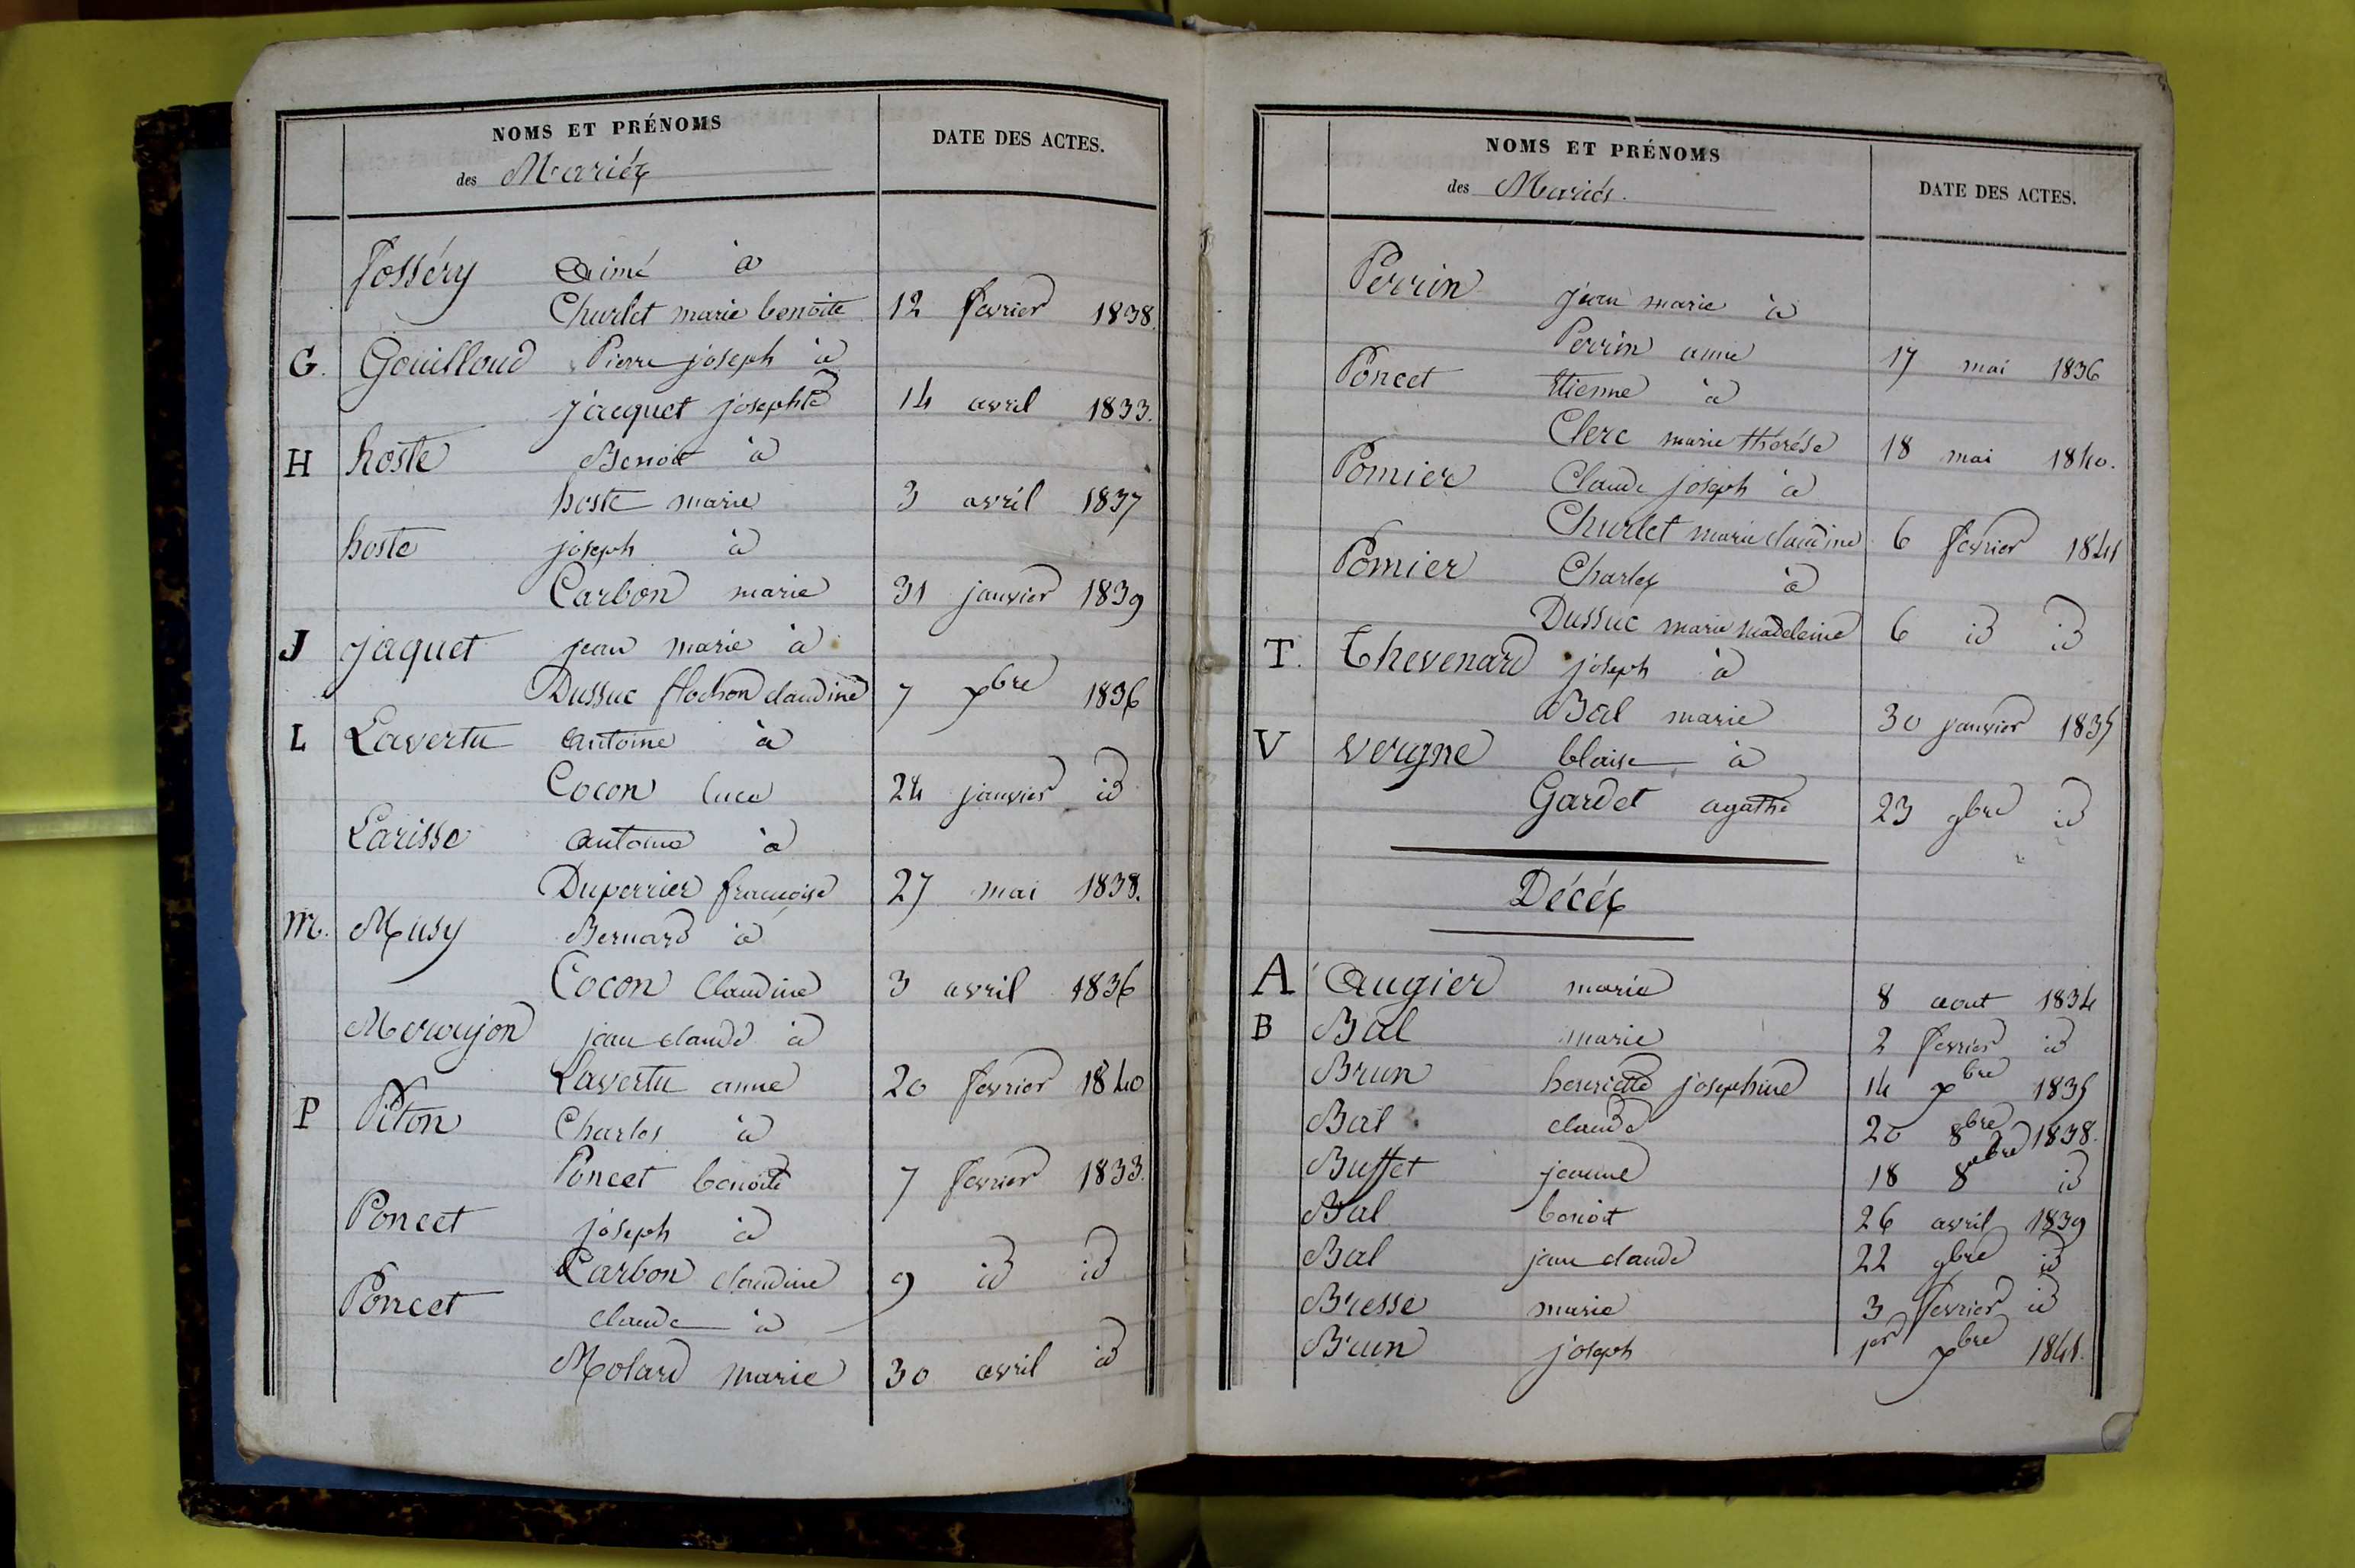 NOMS ET PRÉNOMS
DATE DES ACTES.
des Mariés
fosséry Aimé à
Churlet marie benoite 12 fevrier 1838.
G. Gouilloud Pierre joseph à
jacquet josephte 14 avril 1833.
H hoste Benoit à
hoste marie 3 avril 1837
hoste joseph à
Carbon marie 31 janvier 1839
J jaquet jean marie à
Dussuc flochon claudine 7 xbre 1836
L Lavertu antoine à
Cocon luce 24 janvier id
Larisse antoine à
Duperrier francoise 27 mai 1838.
M. Musy Bernard à
Cocon Claudine 3 avril 1836
jean claude à
Lavertu anne 20 fevrier 1840
P Piton Charles à
Poncet benoite 7 fevrier 1833.
Poncet joseph à
Carbon claudine 9 id id
Poncet claude à
Molard marie 30 avril id
NOMS ET PRÉNOMS
DATE DES ACTES.
des Mariés.
Perrin jean marie à
Perrin anne 17 mai 1836
Poncet Etienne à
Clerc marie thérése 18 mai 1840.
Pomier Claude joseph à
Churlet marie claudine 6 fevrier 1841
Pomier Charles à
Dussuc marie madeleine 6 id id
T. Thevenard joseph à
Bal marie 30 janvier 1835
V vergne blaise à
Gardet agathe 23 9bre id
Décés
A Augier marie 8 aout 1834
B Bal marie 2 fevrier id
Brun henriette josephine 14 xbre 1835
Bal claude 20 8bre 1838.
Buffet jeanne 18 8bre id
Bal benoit 26 avril 1839
Bal jean claude 22 9bre id
Bresse marie 3 fevrier id
Brun joseph 1er xbre 1841.